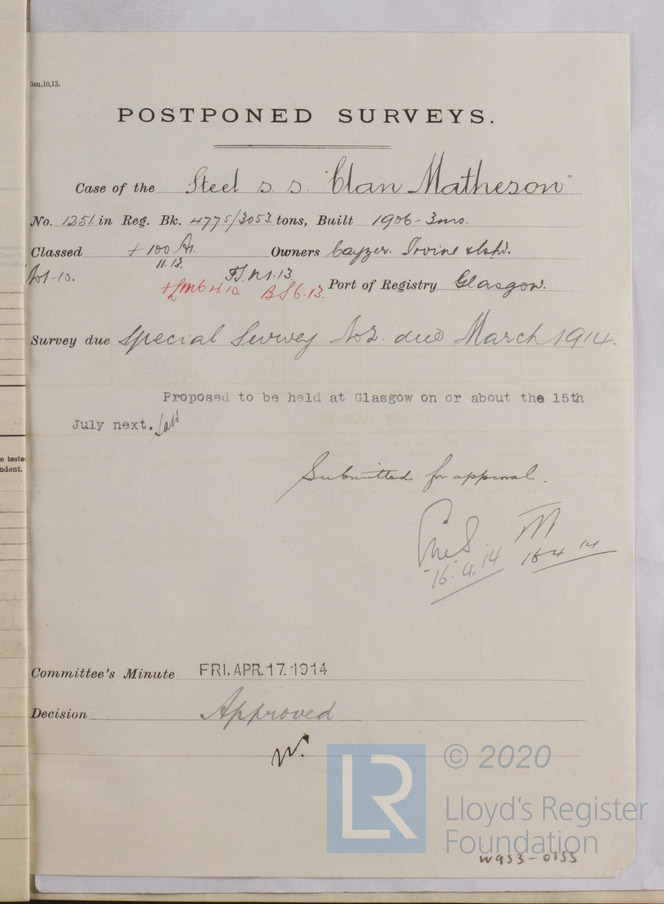 5m,10,13.
POSTPONED SURVEYS.
Case of the Steel s. s. "Clan Matheson"
No. 1251 in Reg. Bk. 4775/3053 tons, Built 1906-3mo.
Classed + 100 A1. Owners Cayzer. Irvine &
11.13.
No1-10. 13.
+LMC 4.10 BS 6.13. Port of Registry Glasgow.
Survey due Special Survey No2. due March 1914.
Proposed to be held at Glasgow on or about the 15th
July next.
Submitted for approval.
16.4.14 16 4 14
Committee's Minute FRI. APR. 17. 1914
Decision Approved
© 2020
LR
Lloyd's Register
Foundation
W953-0155
e teste
ndent.